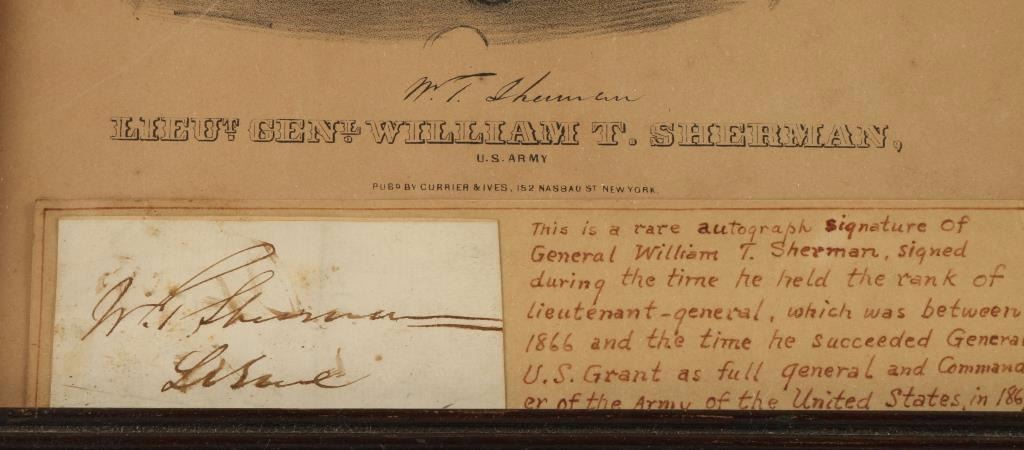 W. T. Sherman
LIEUT. GENL. WILLIAM T. SHERMAN,
U.S. ARMY
PUBD BY CURRIER & IVES, 152 NASSAU ST NEW YORK.
W. T. Sherman
This is a rare autograph signature of
General William T. Sherman, signed
during the time he held the rank of
lieutenant-general, which was between
1866 and the time he succeeded General
U.S. Grant as full general and Command
er of the Army of the United States, in 186